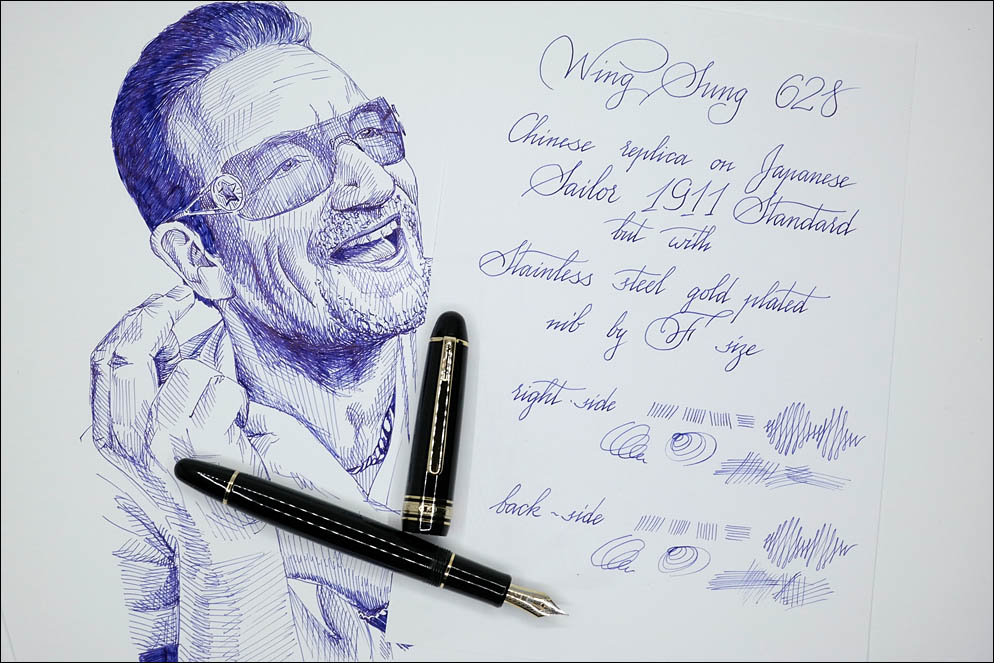 Wing Sung 628
Chinese replica on Japanese
Sailor 1911 Standard
but with
Stainless steel gold plated
nib by "F" size
right-side
back-side